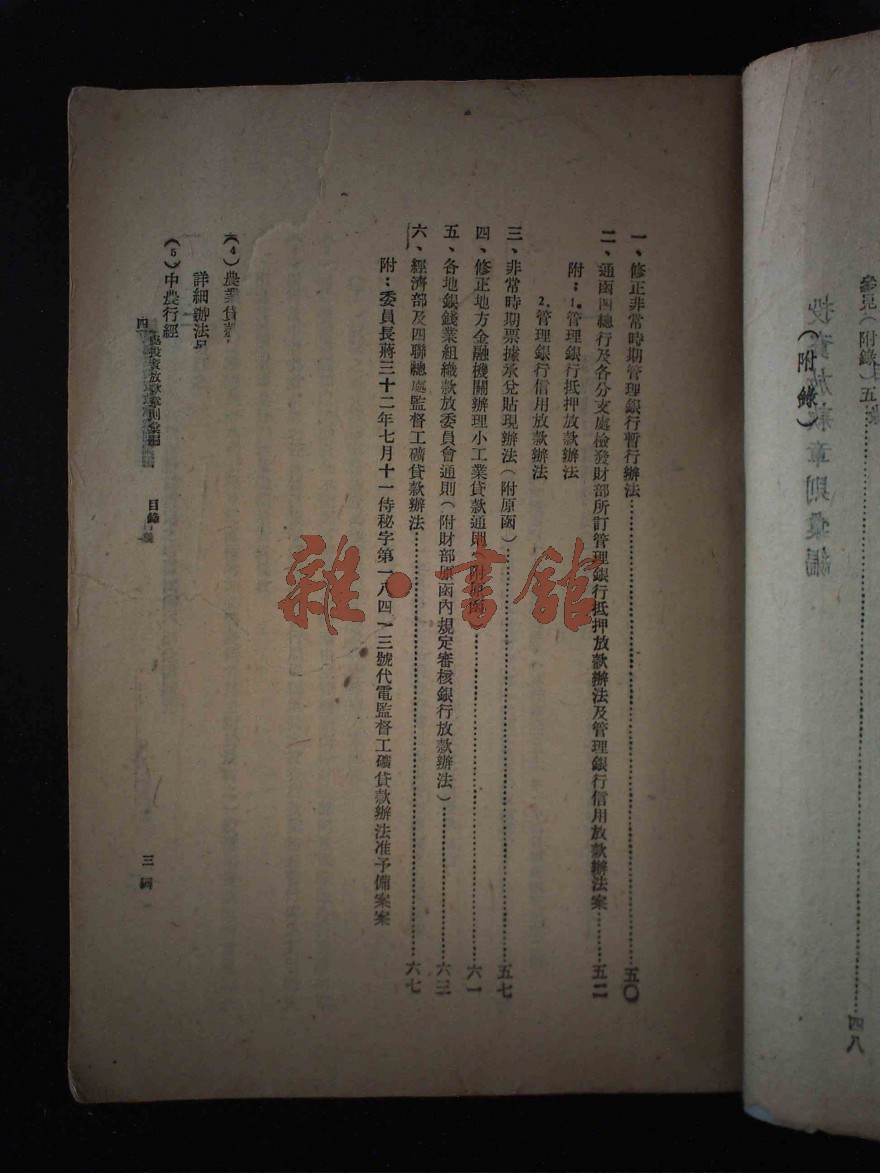 參見(附錄)五
四八
(附錄)
一、修正非常時期管理銀行暫行辦法……五〇
二、通函四總行及各分支處檢發財部所訂管理銀行抵押放款辦法及管理銀行信用放款辦法案……五二
附:1.管理銀行抵押放款辦法
2.管理銀行信用放款辦法
三、非常時期票據承兌貼現辦法(附原函)……五七
四、修正地方金融機關辦理小工業貸款通則(附原函)……六一
五、各地銀錢業組織放款委員會通則(附財部原函內規定審核銀行放款辦法)……六三
六、經濟部及四聯總處監督工礦貸款辦法……六七
附:委員長蔣三十二年七月十一侍秘字第一八四一三號代電監督工礦貸款辦法准予備案案
(4)農業貸款
詳細辦法
(5)中農行經
投資放款章則彙編
目錄
三
雜·書館